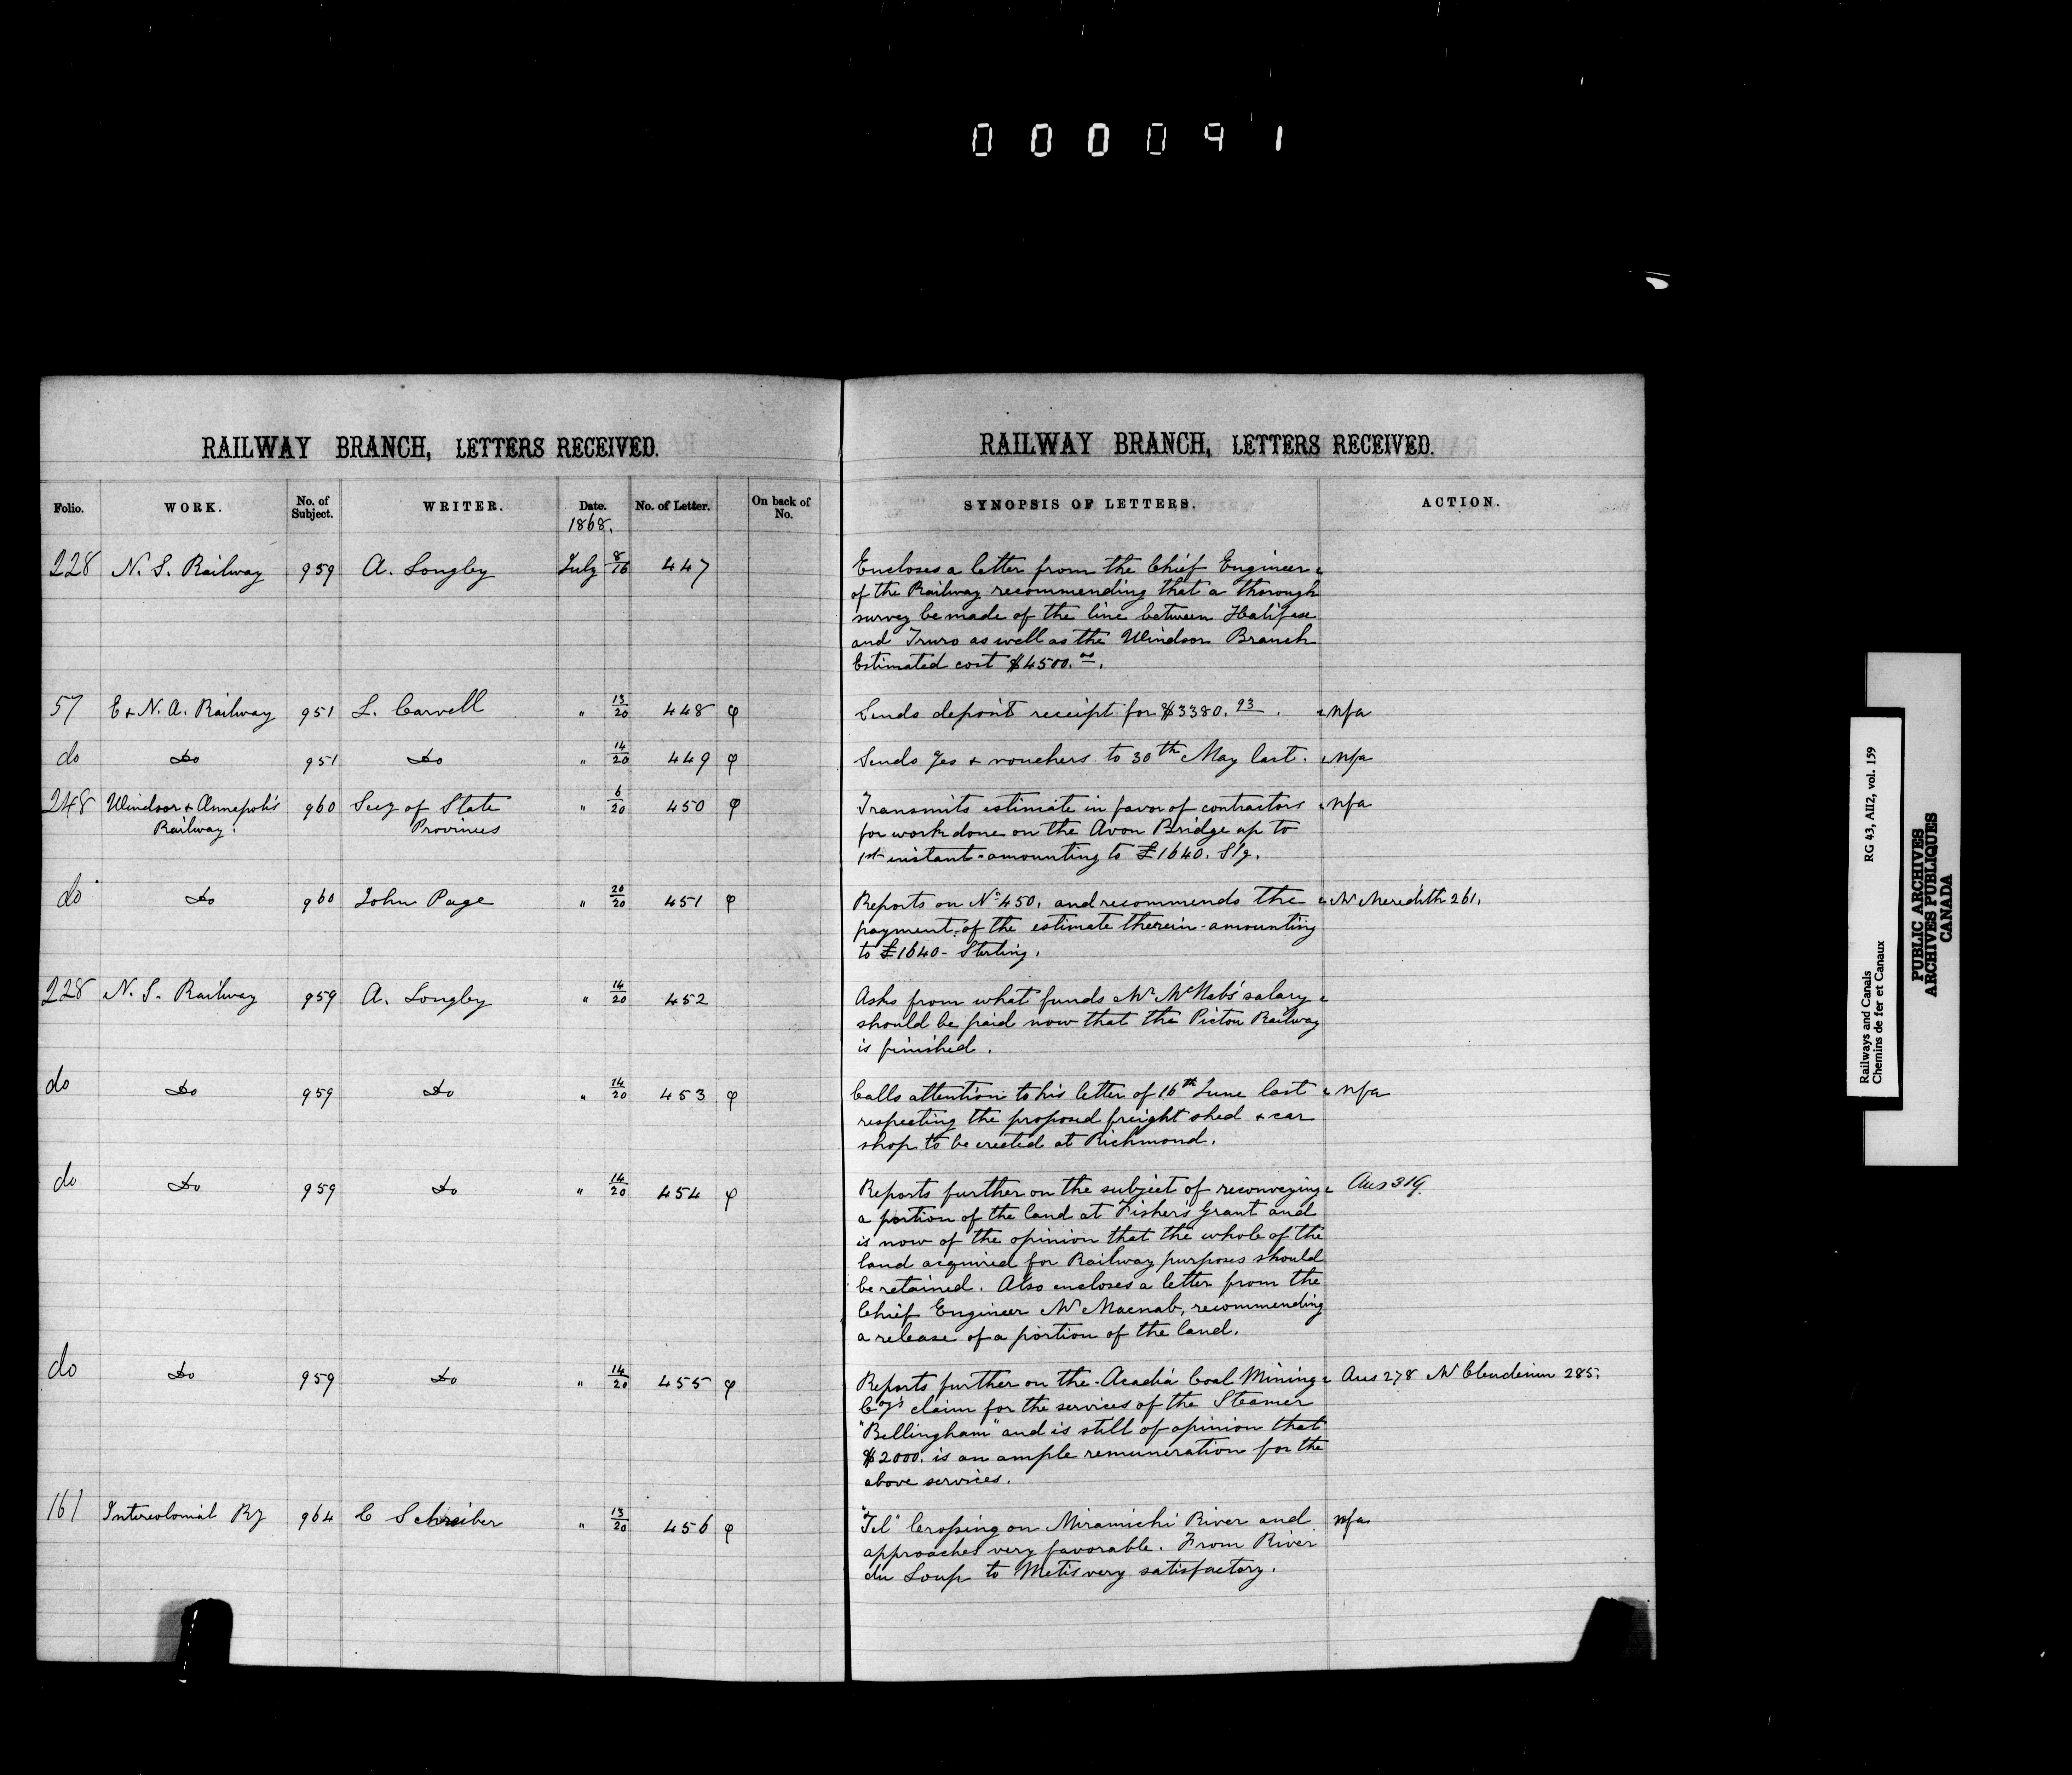 000091
RAILWAY BRANCH, LETTERS RECEIVED.
Folio. WORK. No. of Subject. WRITER. Date. No. of Letter. On back of No.
1868.
228 N. S. Railway 959 A. Longley July 8/16 447
57 E & N. A. Railway 951 L. Carvell " 13/20 448 φ
do Do 951 Do " 14/20 449 φ
248 Windsor & Annapolis 960 Secy of State " 6/20 450 φ
Railway. Provinces
do Do 960 John Page " 20/20 451 φ
228 N. S. Railway 959 A. Longley " 14/20 452
do Do 959 Do " 14/20 453 φ
do Do 959 Do " 14/20 454 φ
do Do 959 Do " 14/20 455 φ
161 Intercolonial Ry 964 C Schreiber " 13/20 456 φ
RAILWAY BRANCH, LETTERS RECEIVED.
SYNOPSIS OF LETTERS. ACTION.
Encloses a letter from the Chief Engineer
of the Railway recommending that a thorough
survey be made of the line between Halifax
and Truro as well as the Windsor Branch
Estimated cost $4500.00.
Sends deposit receipt for $3380.93. nfa
Sends & vouchers to 30th May last. nfa
Transmits estimate in favor of contractors nfa
for work done on the Avon Bridge up to
1st instant amounting to £1640. Stg.
Reports on No 450, and recommends the Mr Meredith 261.
payment of the estimate therein amounting
to £1640 - Sterling.
Asks from what funds Mr McNabs' salary
should be paid now that the Pictou Railway
is finished.
Calls attention to his letter of 16th June last nfa
respecting the proposed freight shed & car
shop to be erected at Richmond.
Reports further on the subject of reconveying Ans 319.
a portion of the land at Fisher's Grant and
is now of the opinion that the whole of the
land acquired for Railway purposes should
be retained. Also encloses a letter from the
Chief Engineer Mr Macnab, recommending
a release of a portion of the land.
Reports further on the Acadia Coal Mining Ans 278 Mr Clendinin 285.
Coy's claim for the services of the Steamer
"Bellingham" and is still of opinion that
$2000. is an ample remuneration for the
above services.
"Tel" Crossing on Miramichi River and nfa
approaches very favorable. From River
du Loup to Metis very satisfactory.
Railways and Canals RG 43, AII2, vol. 159
Chemins de fer et Canaux
PUBLIC ARCHIVES
ARCHIVES PUBLIQUES
CANADA